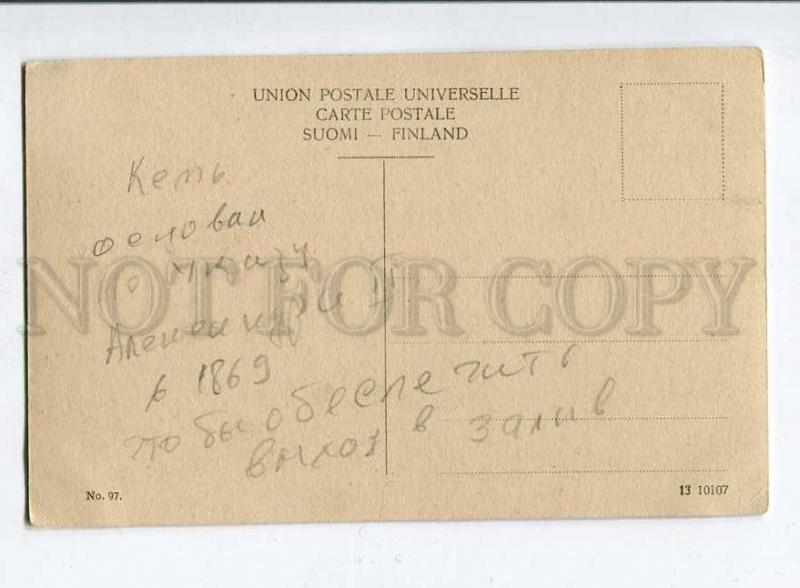 UNION POSTALE UNIVERSELLE
CARTE POSTALE
SUOMI — FINLAND
Кемь
основан
указу
Александра II
в 1869
чтобы обеспечить
выход в залив
NOT FOR COPY
No. 97.
13 10107